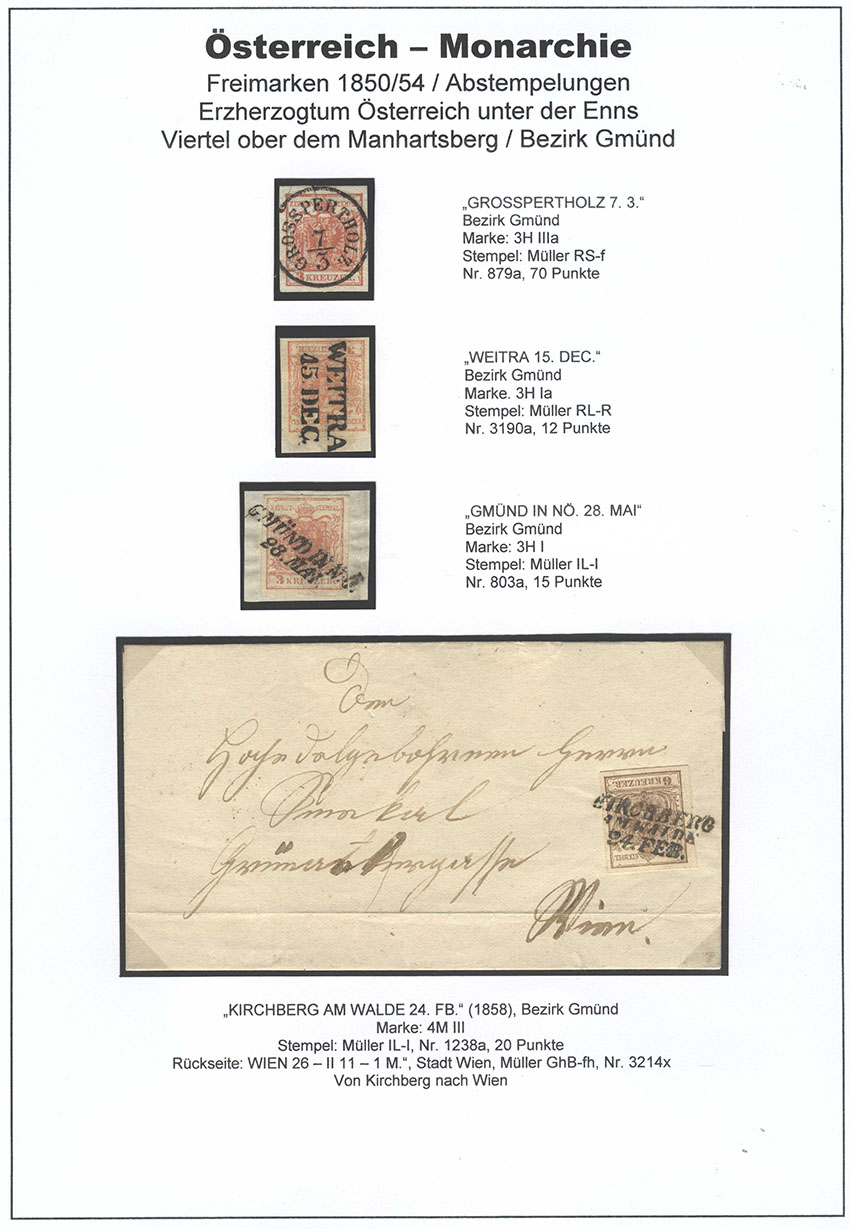 Österreich – Monarchie
Freimarken 1850/54 / Abstempelungen
Erzherzogtum Österreich unter der Enns
Viertel ober dem Manhartsberg / Bezirk Gmünd
GROSSPERTHOLZ
7
3
3 KREUZER.
„GROSSPERTHOLZ 7. 3.“
Bezirk Gmünd
Marke: 3H IIIa
Stempel: Müller RS-f
Nr. 879a, 70 Punkte
WEITRA
15 DEC.
„WEITRA 15. DEC.“
Bezirk Gmünd
Marke. 3H Ia
Stempel: Müller RL-R
Nr. 3190a, 12 Punkte
GMÜND IN N.Ö.
28. MAI.
3 KREUZER.
„GMÜND IN NÖ. 28. MAI“
Bezirk Gmünd
Marke: 3H I
Stempel: Müller IL-I
Nr. 803a, 15 Punkte
Dem
Hochedelgebohrenen Herrn
Smekal
Wien.
6 KREUZER.
KIRCHBERG
AM WALDE
24. FEB.
„KIRCHBERG AM WALDE 24. FB.“ (1858), Bezirk Gmünd
Marke: 4M III
Stempel: Müller IL-I, Nr. 1238a, 20 Punkte
Rückseite: WIEN 26 – II 11 – 1 M.“, Stadt Wien, Müller GhB-fh, Nr. 3214x
Von Kirchberg nach Wien